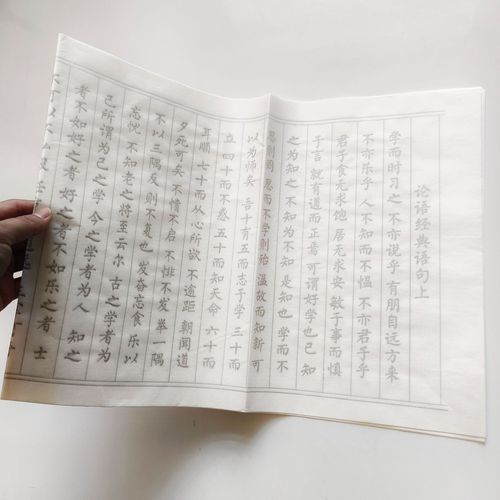 论语经典语句上
学而时习之 不亦说乎 有朋自远方来
不亦乐乎 人不知而不愠 不亦君子乎
君子食无求饱 居无求安 敏于事而慎
于言 就有道而正焉 可谓好学也已 知
之为知之 不知为不知 是知也 学而不
思则罔 思而不学则殆 温故而知新 可
以为师矣 吾十有五而志于学 三十而
立 四十而不惑 五十而知天命 六十而
耳顺 七十而从心所欲 不逾距 朝闻道
夕死可矣 不愤不启 不悱不发 举一隅
不以三隅反 则不复也 发奋忘食 乐以
忘忧 不知老之将至云尔 古之学者为
己所谓为己之学 今之学者为人 知之
者不如好之者 好之者不如乐之者 士